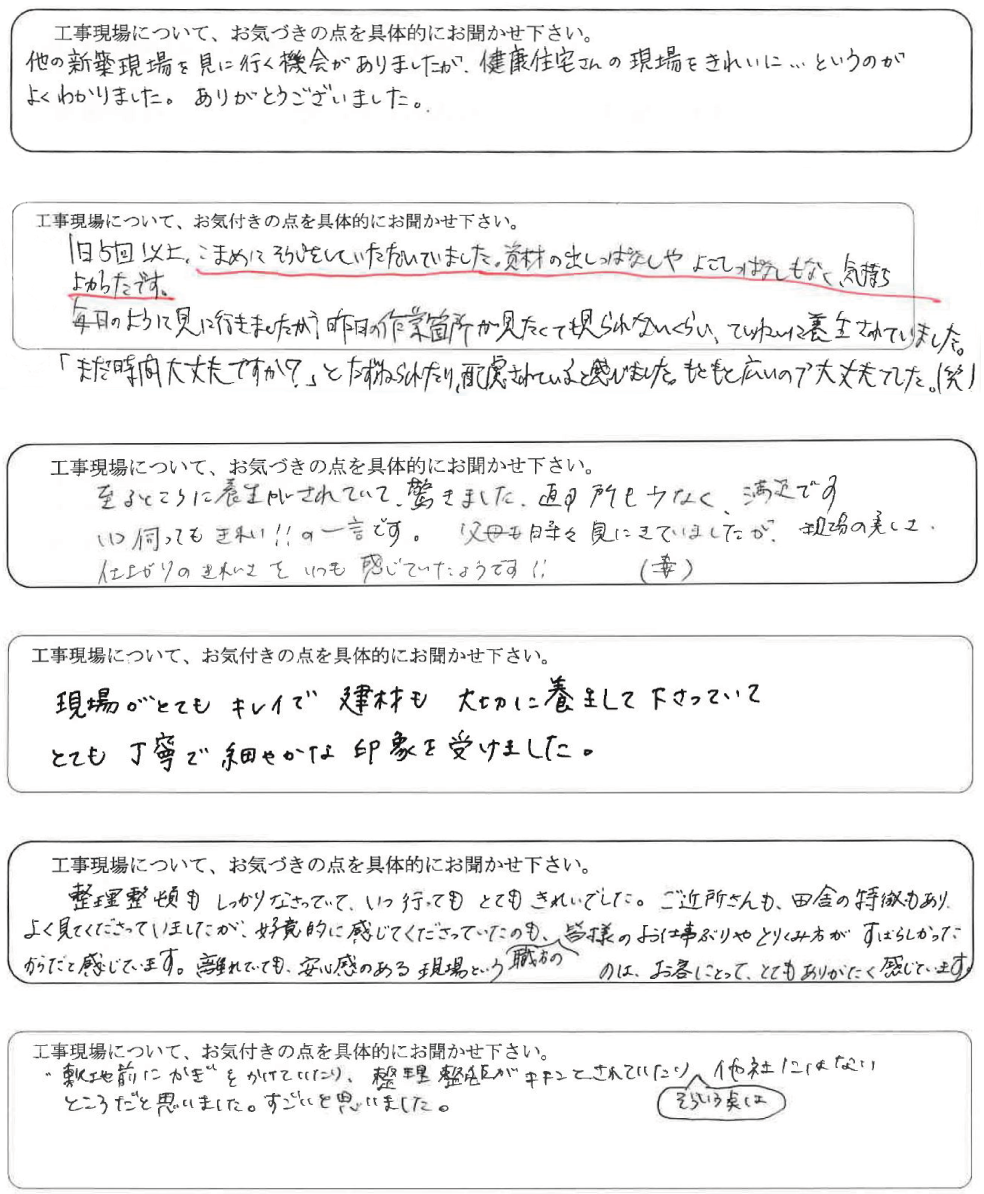 工事現場について、お気づきの点を具体的にお聞かせ下さい。
他の新築現場を見に行く機会がありましたが、健康住宅さんの現場をきれいに…というのが
よくわかりました。ありがとうございました。
工事現場について、お気付きの点を具体的にお聞かせ下さい。
1日5回以上、こまめにそうじをしていただいていました。資材の出しっぱなしやよごしっぱなしもなく、気持ち
よかったです。
毎日のように見に行きましたが、昨日の作業箇所が見たくても見られないくらい、ていねいに養生されていました。
「まだ時間大丈夫ですか?」とたずねられたり、配慮されていると感じました。もともと広いので大丈夫でした。(笑)
工事現場について、お気づきの点を具体的にお聞かせ下さい。
至るところに養生がされていて、驚きました。直す所も少なく、満足です
いつ伺ってもきれい!!の一言です。父母も時々見にきていましたが、現場の美しさ、
仕上がりのきれいさをいつも感じていたようです!!
工事現場について、お気付きの点を具体的にお聞かせ下さい。
現場がとてもキレイで建材も大切に養生して下さっていて
とても丁寧で細やかな印象を受けました。
工事現場について、お気づきの点を具体的にお聞かせ下さい。
整理整頓もしっかりなさっていて、いつ行ってもとてもきれいでした。ご近所さんも、田舎の特徴もあり、
よく見てくださっていましたが、好意的に感じてくださっていたのも、皆様のお仕事ぶりやとりくみ方がすばらしかった
からだと感じています。離れていても、安心感のある現場という職方ののは、お客にとって、とてもありがたく感じています。
工事現場について、お気付きの点を具体的にお聞かせ下さい。
・敷地前にかぎをかけていたり、整理整頓がキチンとされていたり、そういう点は他社にはない
ところだと思いました。すごいと思いました。